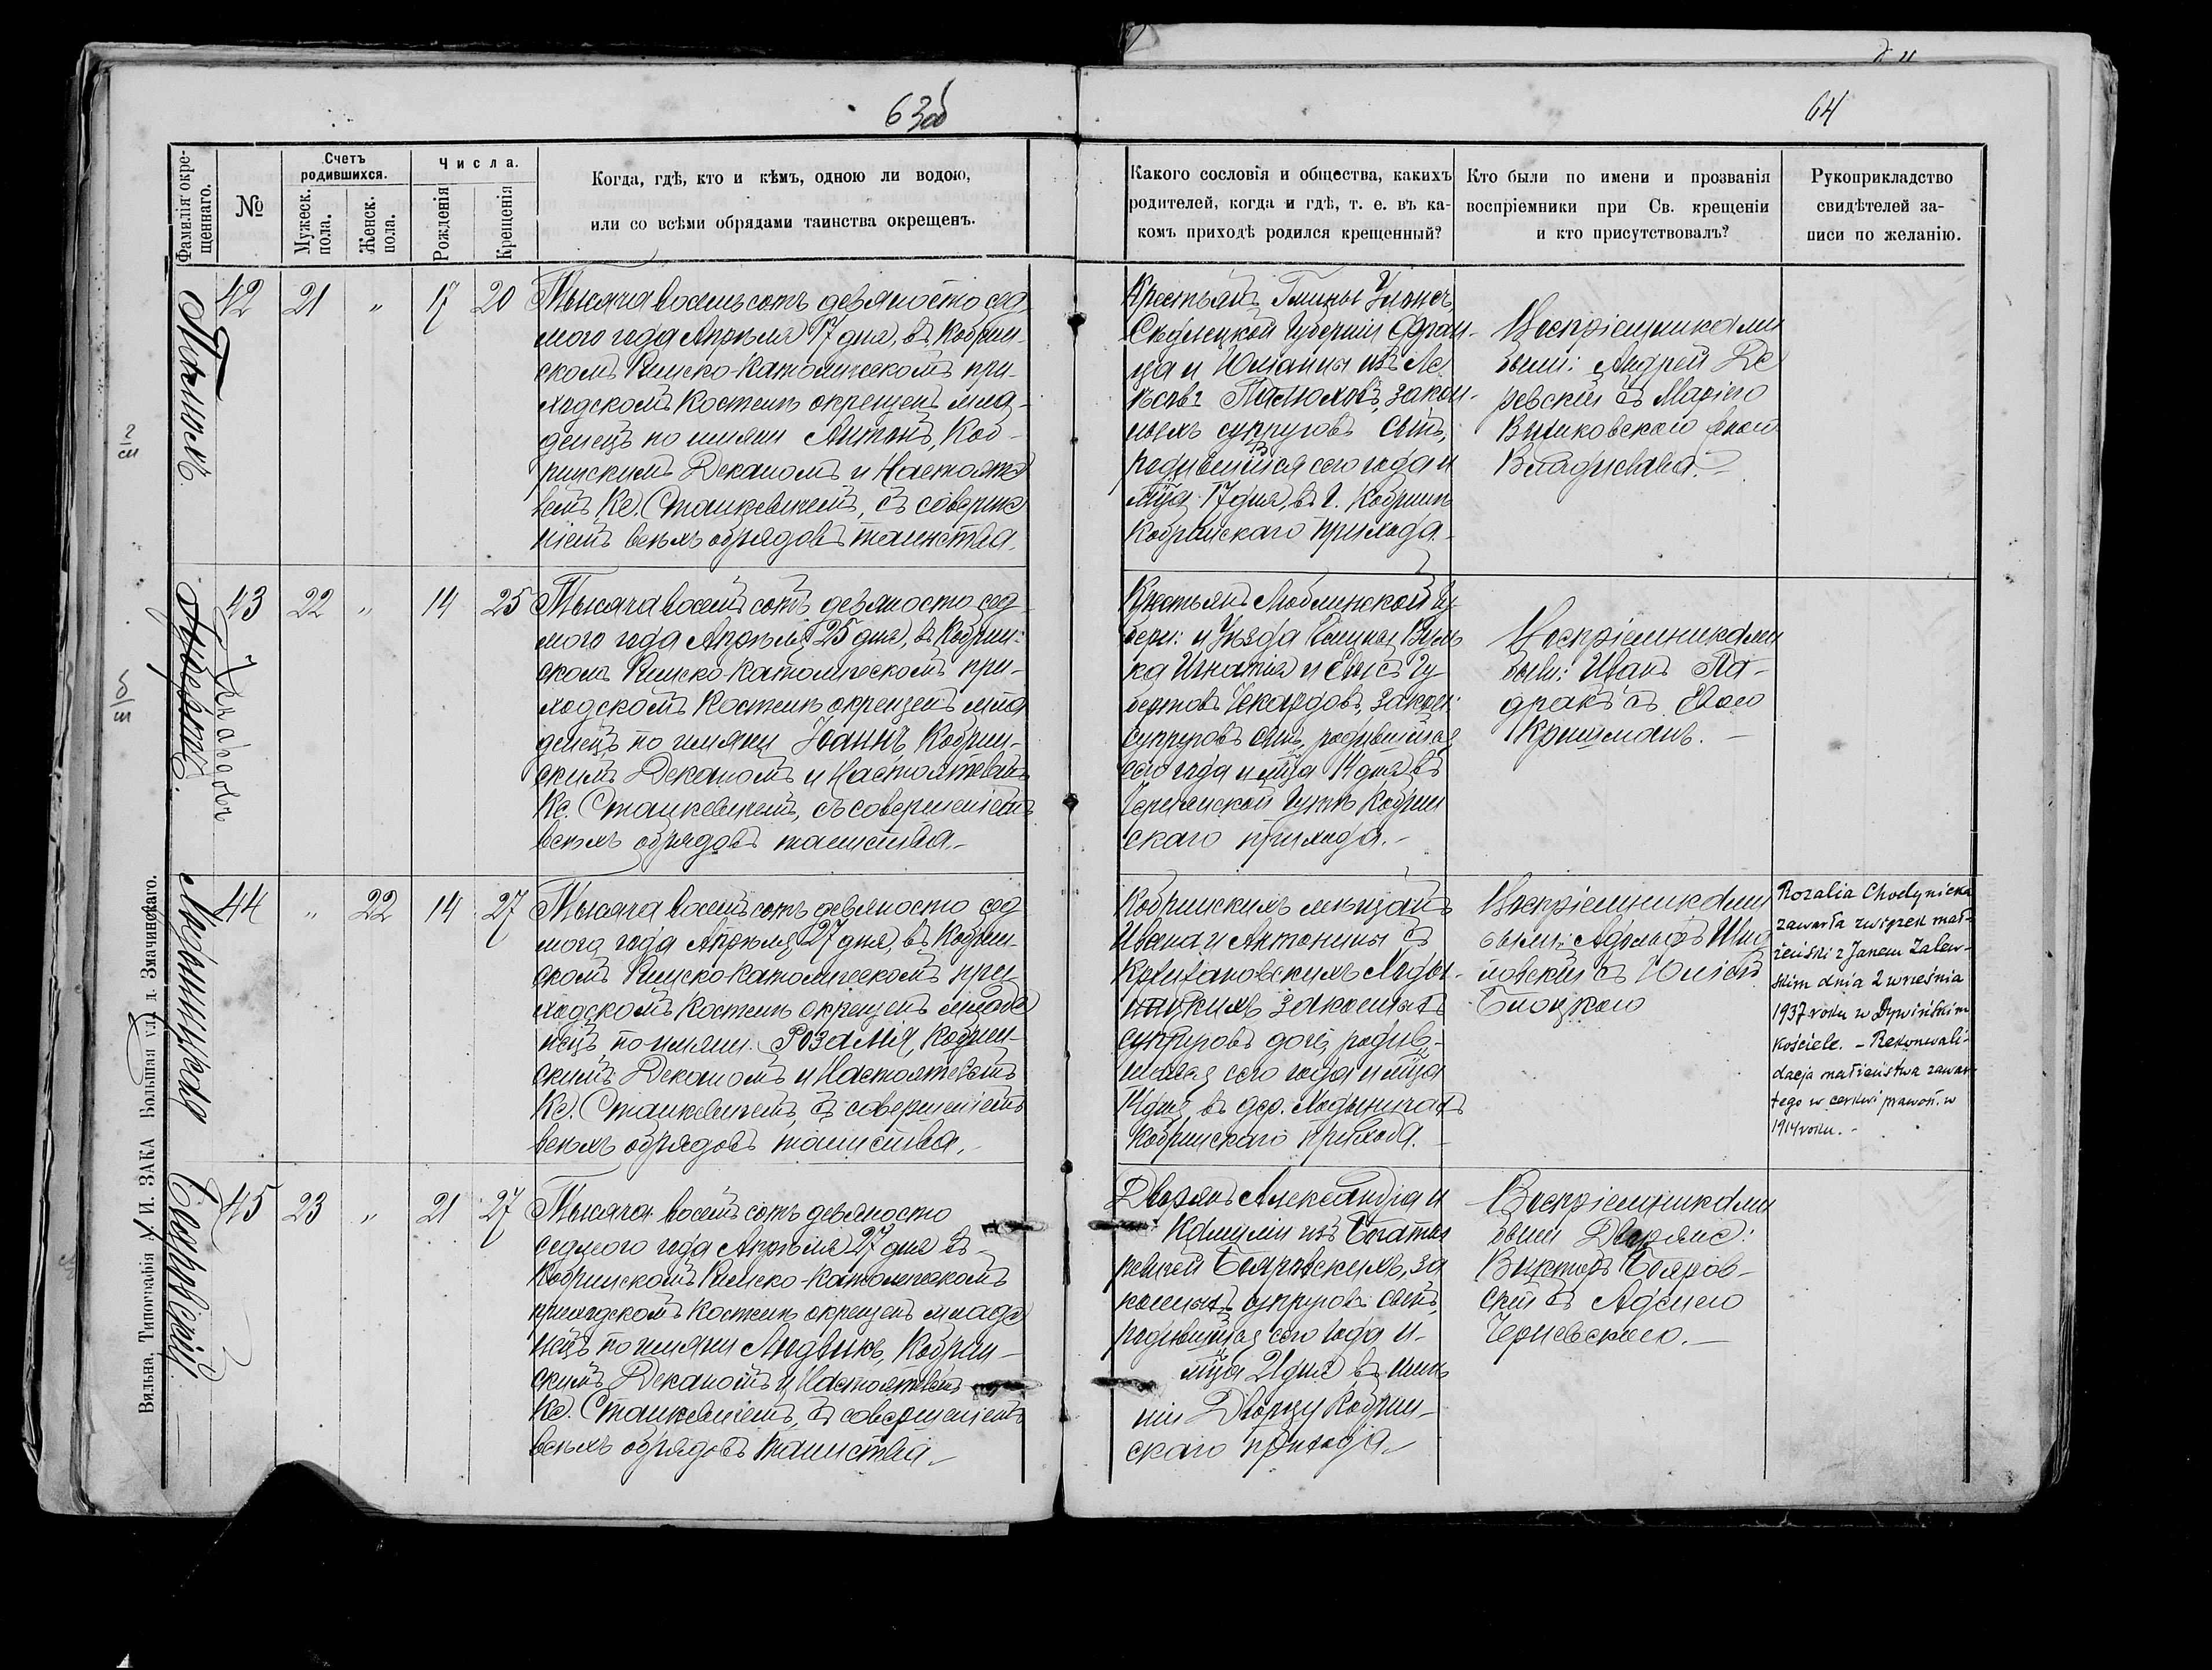 63об
64
Фамилія окре-
щеннаго.
№
Счетъ
родившихся.
Мужеск.
пола.
Женск.
пола.
Числа.
Рожденія
Крещенія
Когда, гдѣ, кто и кѣмъ, одною ли водою,
или со всѣми обрядами таинства окрещенъ.
Какого сословія и общества, какихъ
родителей, когда и гдѣ, т. е. въ ка-
комъ приходѣ родился крещенный?
Кто были по имени и прозванія
воспріемники при Св. крещеніи
и кто присутствовалъ?
Рукоприкладство
свидѣтелей за-
писи по желанію.
42 21 " 17 20
Тысяча восемьсотъ девяносто сед-
мого года Апрѣля 17 дня, въ Кобрин-
скомъ Римско-Католическомъ при-
ходскомъ Костелѣ окрещенъ мла-
денецъ по имяни Антонъ, Коб-
ринскимъ Деканомъ и Настояте
лемъ Кс. Станкевичемъ, съ соверше
ніемъ всѣхъ обрядовъ таинства.
Крестьянъ Гмины
Сѣдлецкой Губерніи Фран-
ца и Юліанны изъ
законн-
ныхъ супруговъ сынъ,
родившійся сего года и
м-ца 17 дня, въ г. Кобринѣ
Кобринскаго прихода.-
Воспріемниками
были: Андрей Де
ревскій съ Маріею
женою
Владислава.-
43 22 " 14 25
Чекардовъ
Тысяча восемь сотъ девяносто сед
мого года Апрѣля 25 дня, въ Кобрин-
скомъ Римско-Католическомъ при-
ходскомъ Костелѣ окрещенъ мла
денецъ по имяни Іоаннъ Кобрин-
скимъ Деканомъ и Настоятелемъ
Кс. Станкевичемъ, съ совершеніемъ
всѣхъ обрядовъ таинства.-
Крестьянъ Люблинской Гу-
берн: и Уѣзда
ка Игнатія и Евы съ Гу-
бертовъ Чекардовъ, законн:
супруговъ сынъ, родившійся
сего года и м-ца 14 дня въ
Кобрин
скаго прихода.-
Воспріемниками
были: Иванъ Па-
дракъ съ Евою
Кришманъ.-
Ходыницкая
44 " 22 14 27
Тысяча восемь сотъ девяносто сед
мого года Апрѣля 27 дня, въ Кобрин-
скомъ Римско-Католическомъ при
ходскомъ Костелѣ окрещенъ младе
нецъ по имяни Розалія, Кобрин-
скимъ Деканомъ и Настоятелемъ
Кс. Станкевичемъ, съ совершеніемъ
всѣхъ обрядовъ таинства.-
Кобринскихъ мѣщанъ
Ивана и Антонины съ
Ходы-
ницкихъ законныхъ
супруговъ дочь, родив-
шаяся сего года и м-ца
14 дня, въ дер. Ходыничахъ
Кобринскаго прихода.-
Воспріемниками
были: Адольфъ
съ Юліею
Rozalia Chodynicka
zawarła związek mał-
żeński z Janem Zalew-
skim dnia 2 września
1937 roku w Dywińskim
kościele. - Rekonwali-
dacja małżeństwa zawar-
tego w cerkwi prawosł. w
1914 roku. -
Бояровскій
45 23 " 21 27
Тысяча восемь сотъ девяносто
седмого года Апрѣля 27 дня въ
Кобринскомъ Римско-Католическомъ
приходскомъ Костелѣ окрещенъ младе
нецъ по имяни Людвикъ, Кобрин-
скимъ Деканомъ и Настоятелемъ
Кс. Станкевичемъ, съ совершеніемъ
всѣхъ обрядовъ таинства.-
Дворянъ Александра и
Камиліи изъ Богаты
ревичей Бояровскихъ, за
конныхъ супруговъ сынъ,
родившійся сего года и-
м-ца 21 дня въ имѣ
ніи Дворцы Кобрин-
скаго прихода.-
Воспріемниками
были Дворяне:
Викторъ Бояров-
скій съ Аделею
Черневскою.-
Вильна, Типографія И. ЗАКА Большая ул. д. Змачинскаго.